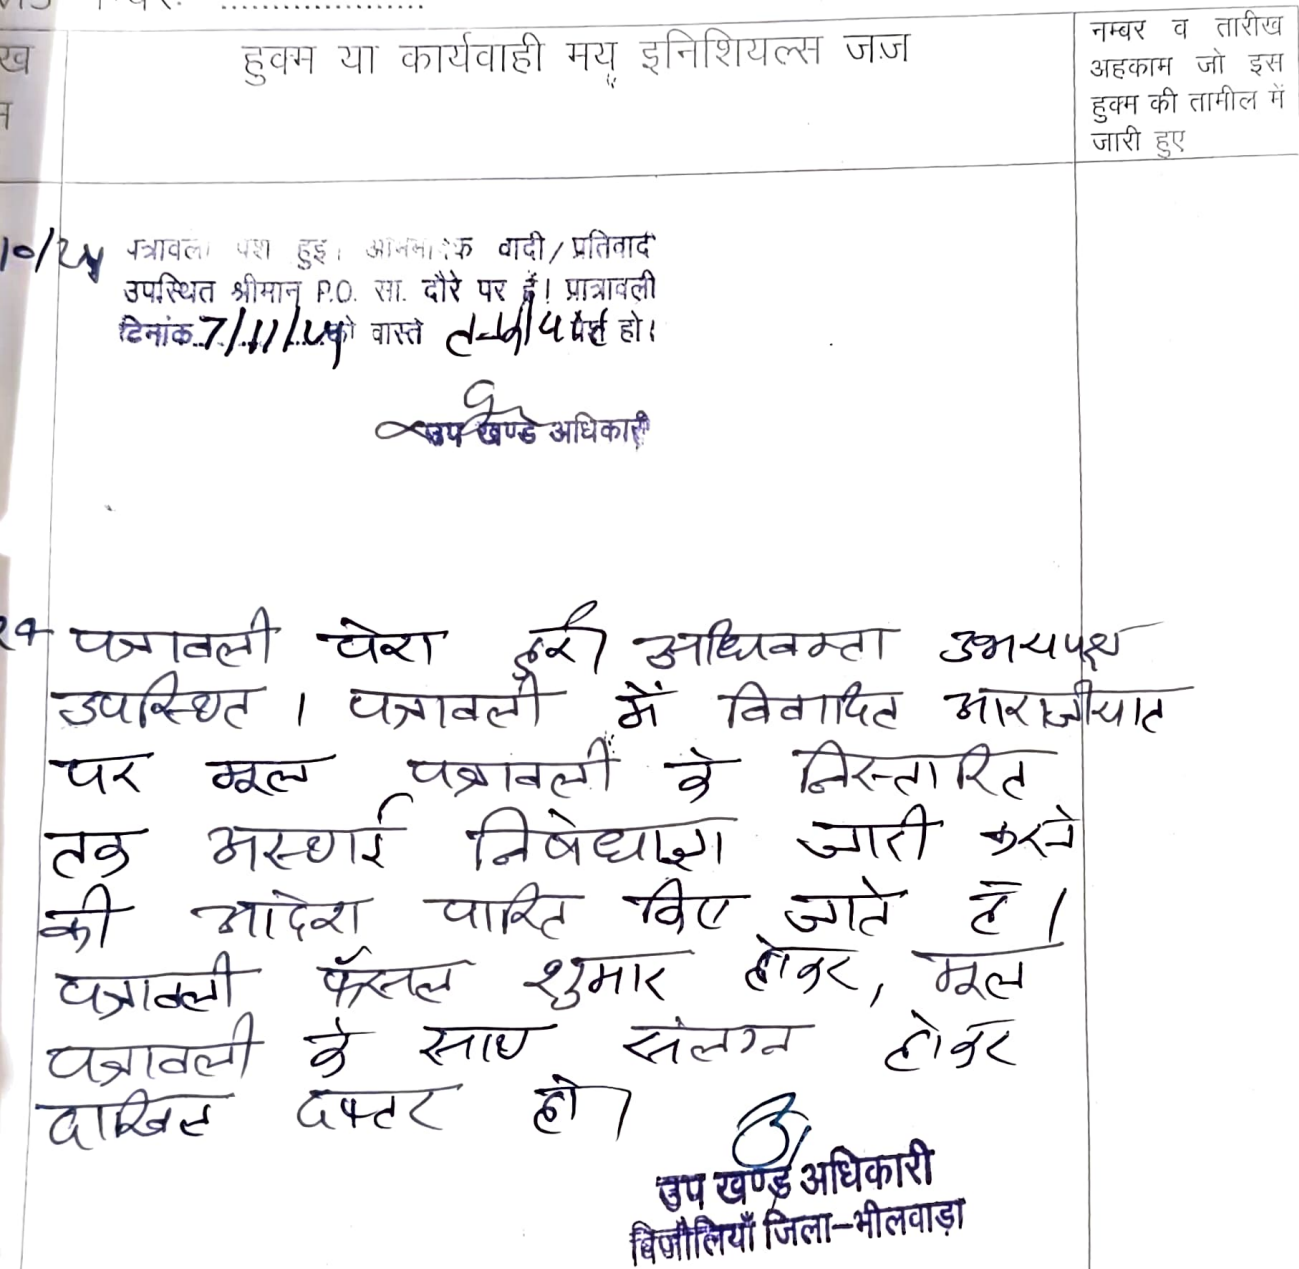 हुक्म या कार्यवाही मय इनिशियल्स जज
नम्बर व तारीख
अहकाम जो इस
हुक्म की तामील में
जारी हुए
10/24 पत्रावली पेश हुई। वादी/प्रतिवादी
उपस्थित श्रीमान् P.O. सा. दौरे पर हैं। प्रात्रावली
दिनांक 7/11/24 को वास्ते पेश हो।
उप खण्ड अधिकारी
पत्रावली पेश हुई। अधिवक्ता उभयपक्ष
उपस्थित । पत्रावली में विवादित आराजीयात
पर मूल पत्रावली के निस्तारित
तक अस्थाई निषेधाज्ञा जारी करने
की आदेश पारित किए जाते है।
पत्रावली फैसल शुमार होकर, मूल
पत्रावली के साथ संलग्न होकर
दाखिल दफ्तर हो।
उप खण्ड अधिकारी
बिजौलियाँ जिला-भीलवाड़ा